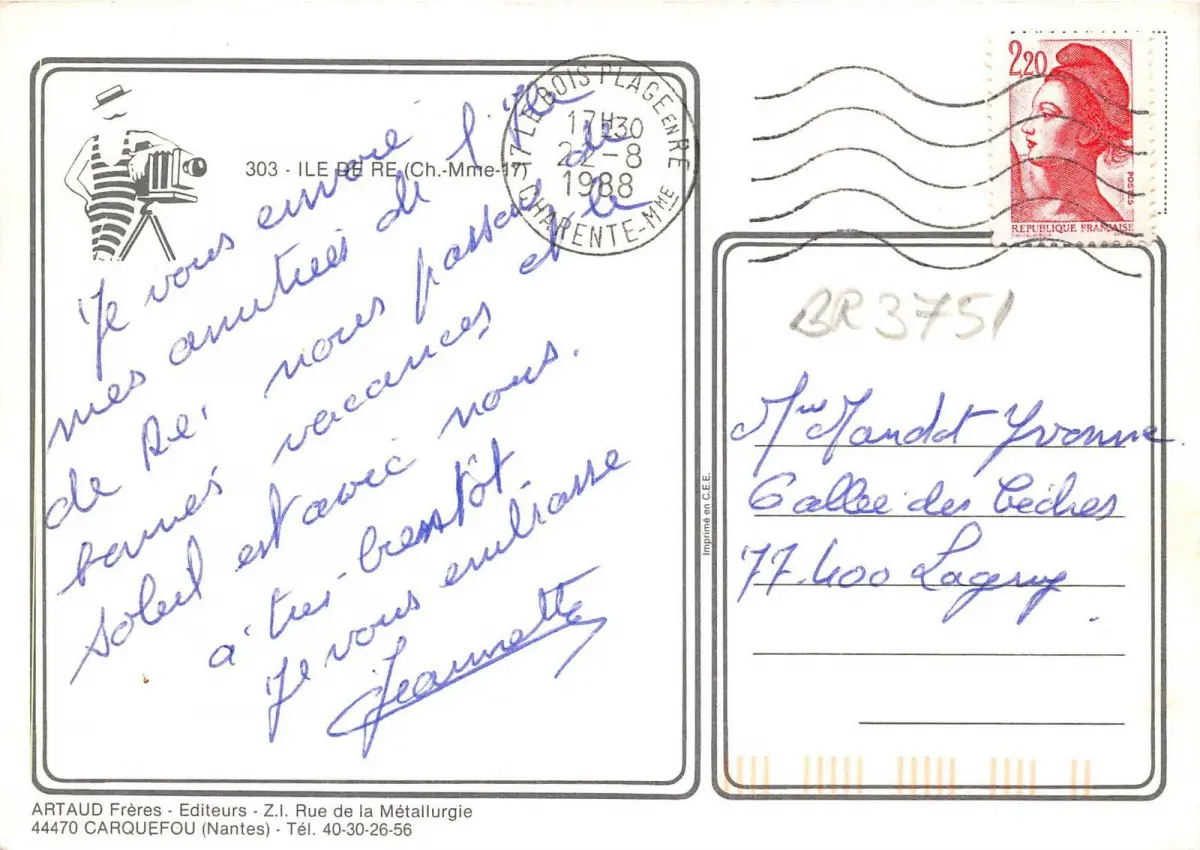 303 - ILE DE RE (Ch.-Mme-17)
Je vous envoie
mes amitiés de l'île
de Ré nous passons de
bonnes vacances et le
soleil est avec nous.
à très bientôt.
Je vous embrasse
Jeannette
17 LE BOIS PLAGE EN RE
17H30
22-8
1988
CHARENTE-MME
2,20
POSTES
REPUBLIQUE FRANÇAISE
BR3751
Imprimé en C.E.E.
Mandot Yvonne
6 allée des
77.400 Lagny
ARTAUD Frères - Editeurs - Z.I. Rue de la Métallurgie
44470 CARQUEFOU (Nantes) - Tél. 40-30-26-56